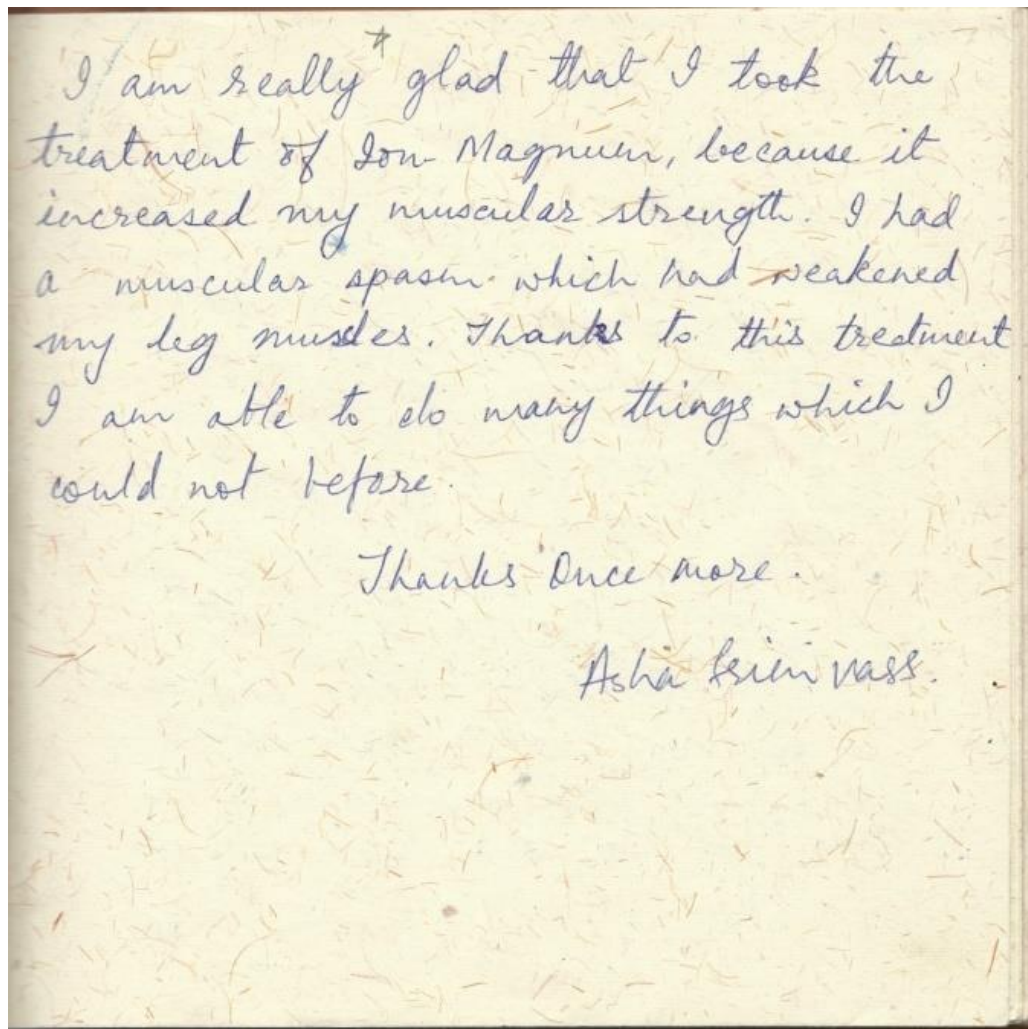 I am really glad that I took the
treatment of Ion Magnum, because it
increased my muscular strength. I had
a muscular spasm which had weakened
my leg muscles. Thanks to this treatment
I am able to do many things which I
could not before.
Thanks Once more.
Asha Srinivass.